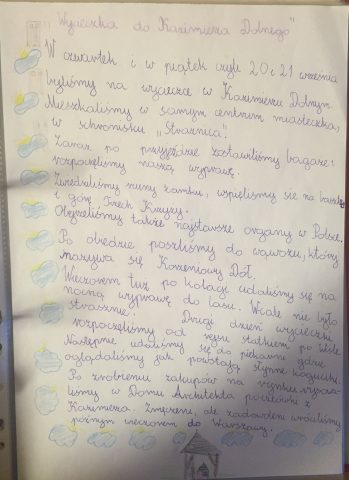 „Wycieczka do Kazimierza Dolnego"
W czwartek i w piątek czyli 20 i 21 września
byliśmy na wycieczce w Kazimierzu Dolnym.
Mieszkaliśmy w samym centrum miasteczka,
w schronisku „Strażnica".
Zaraz po przyjeździe zostawiliśmy bagaże i
rozpoczęliśmy naszą wyprawę.
Zwiedziliśmy ruiny zamku, wspięliśmy się na basztę
i górę Trzech Krzyży.
Obejrzeliśmy także najstarsze organy w Polsce.
Po obiedzie poszliśmy do wąwozu, który
nazywa się Korzeniowy Dół.
Wieczorem tuż po kolacji udaliśmy się na
nocną wyprawę do lasu. Wcale nie było
strasznie. Drugi dzień wycieczki
rozpoczęliśmy od rejsu statkiem po Wiśle.
Następnie udaliśmy się do piekarni gdzie
oglądaliśmy jak powstają słynne koguciki.
Po zrobieniu zakupów na rynku
liśmy w Domu Architekta pocztówki z
Kazimierza. Zmęczeni, ale zadowoleni wróciliśmy
późnym wieczorem do Warszawy.